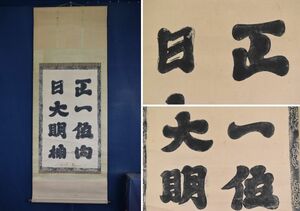 正一位春
日大明神
正
日
一位
大明